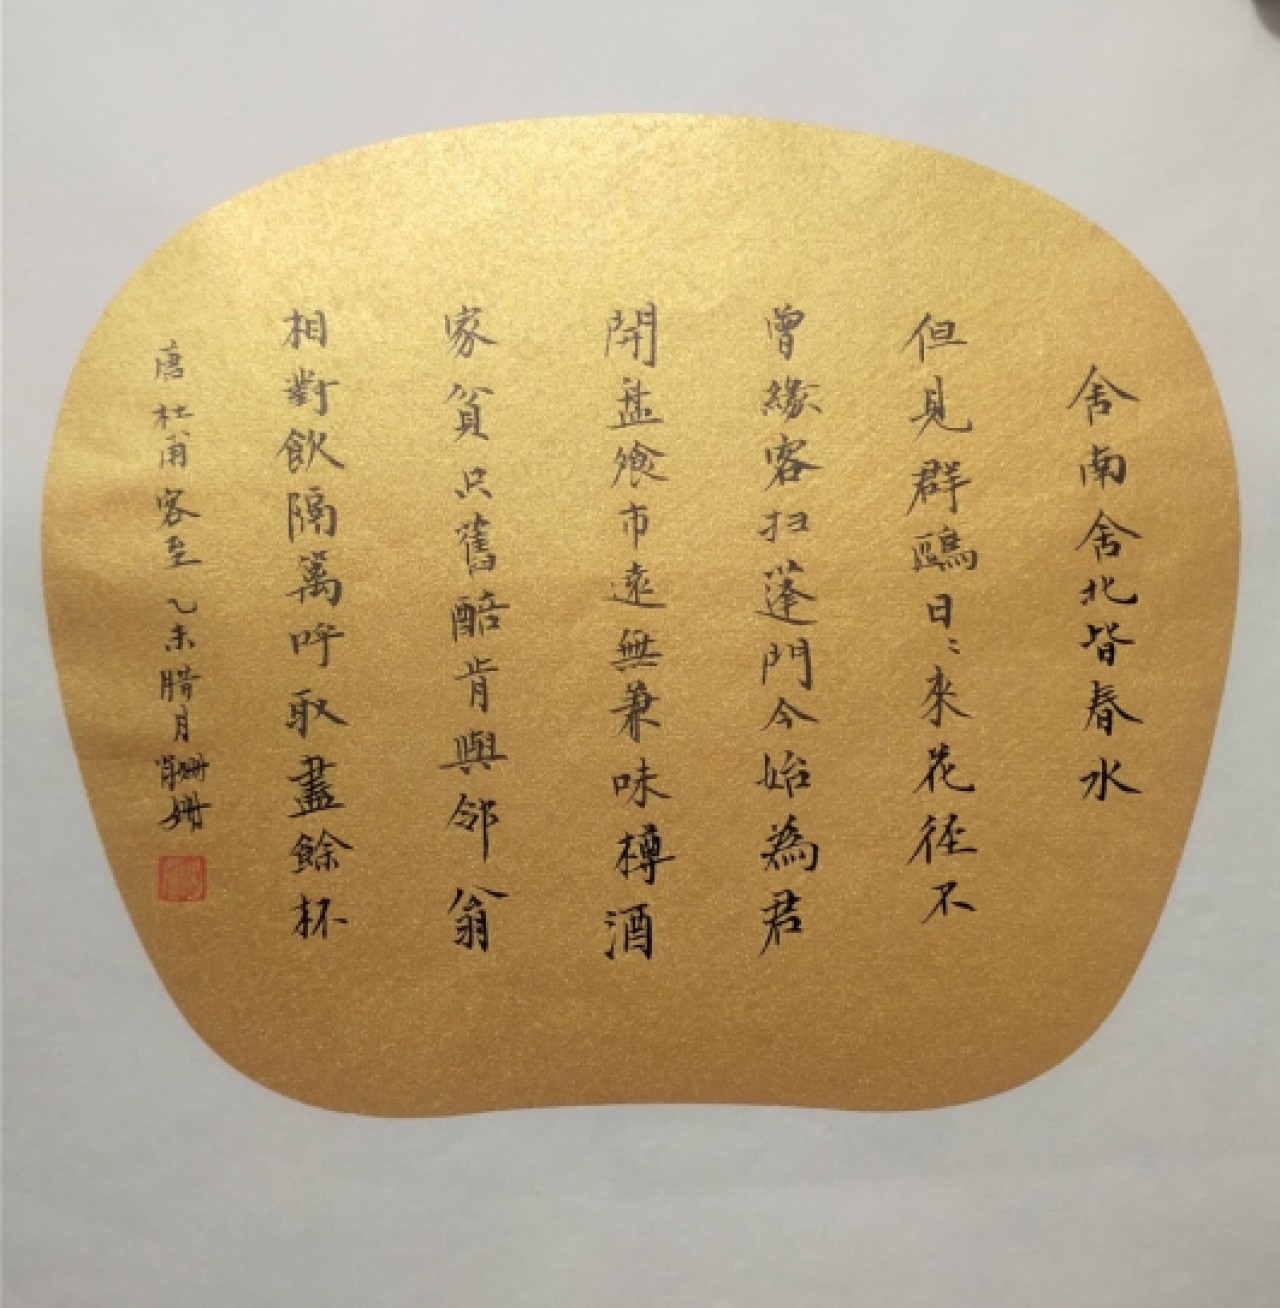 舍南舍北皆春水
但見群鷗日〻來花徑不
曾緣客扫蓬門今始為君
開盘飧市遠無兼味樽酒
家貧只舊醅肯與邻翁
相對飲隔篱呼取盡餘杯
唐杜甫客至乙未腊月肖姗姗